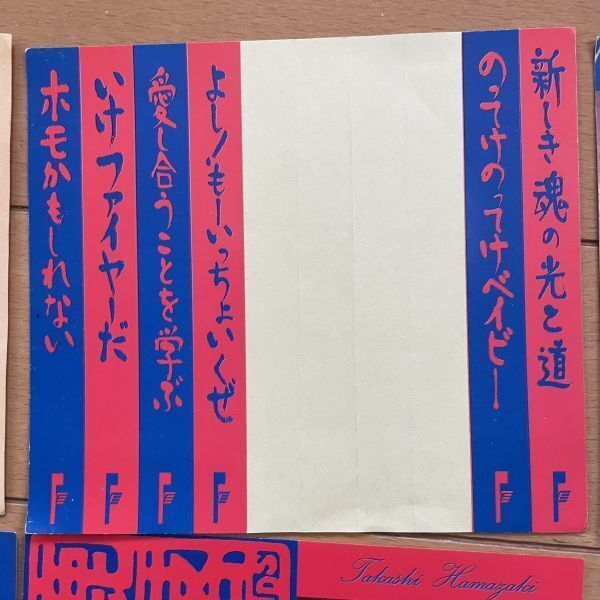 新しき魂の光と道
のってけのってけベイビー
よし!もーいっちょいくぜ
愛し合うことを学ぶ
いけファイヤーだ
ホモかもしれない
F
F
F
F
F
F
Takashi Hamazaki